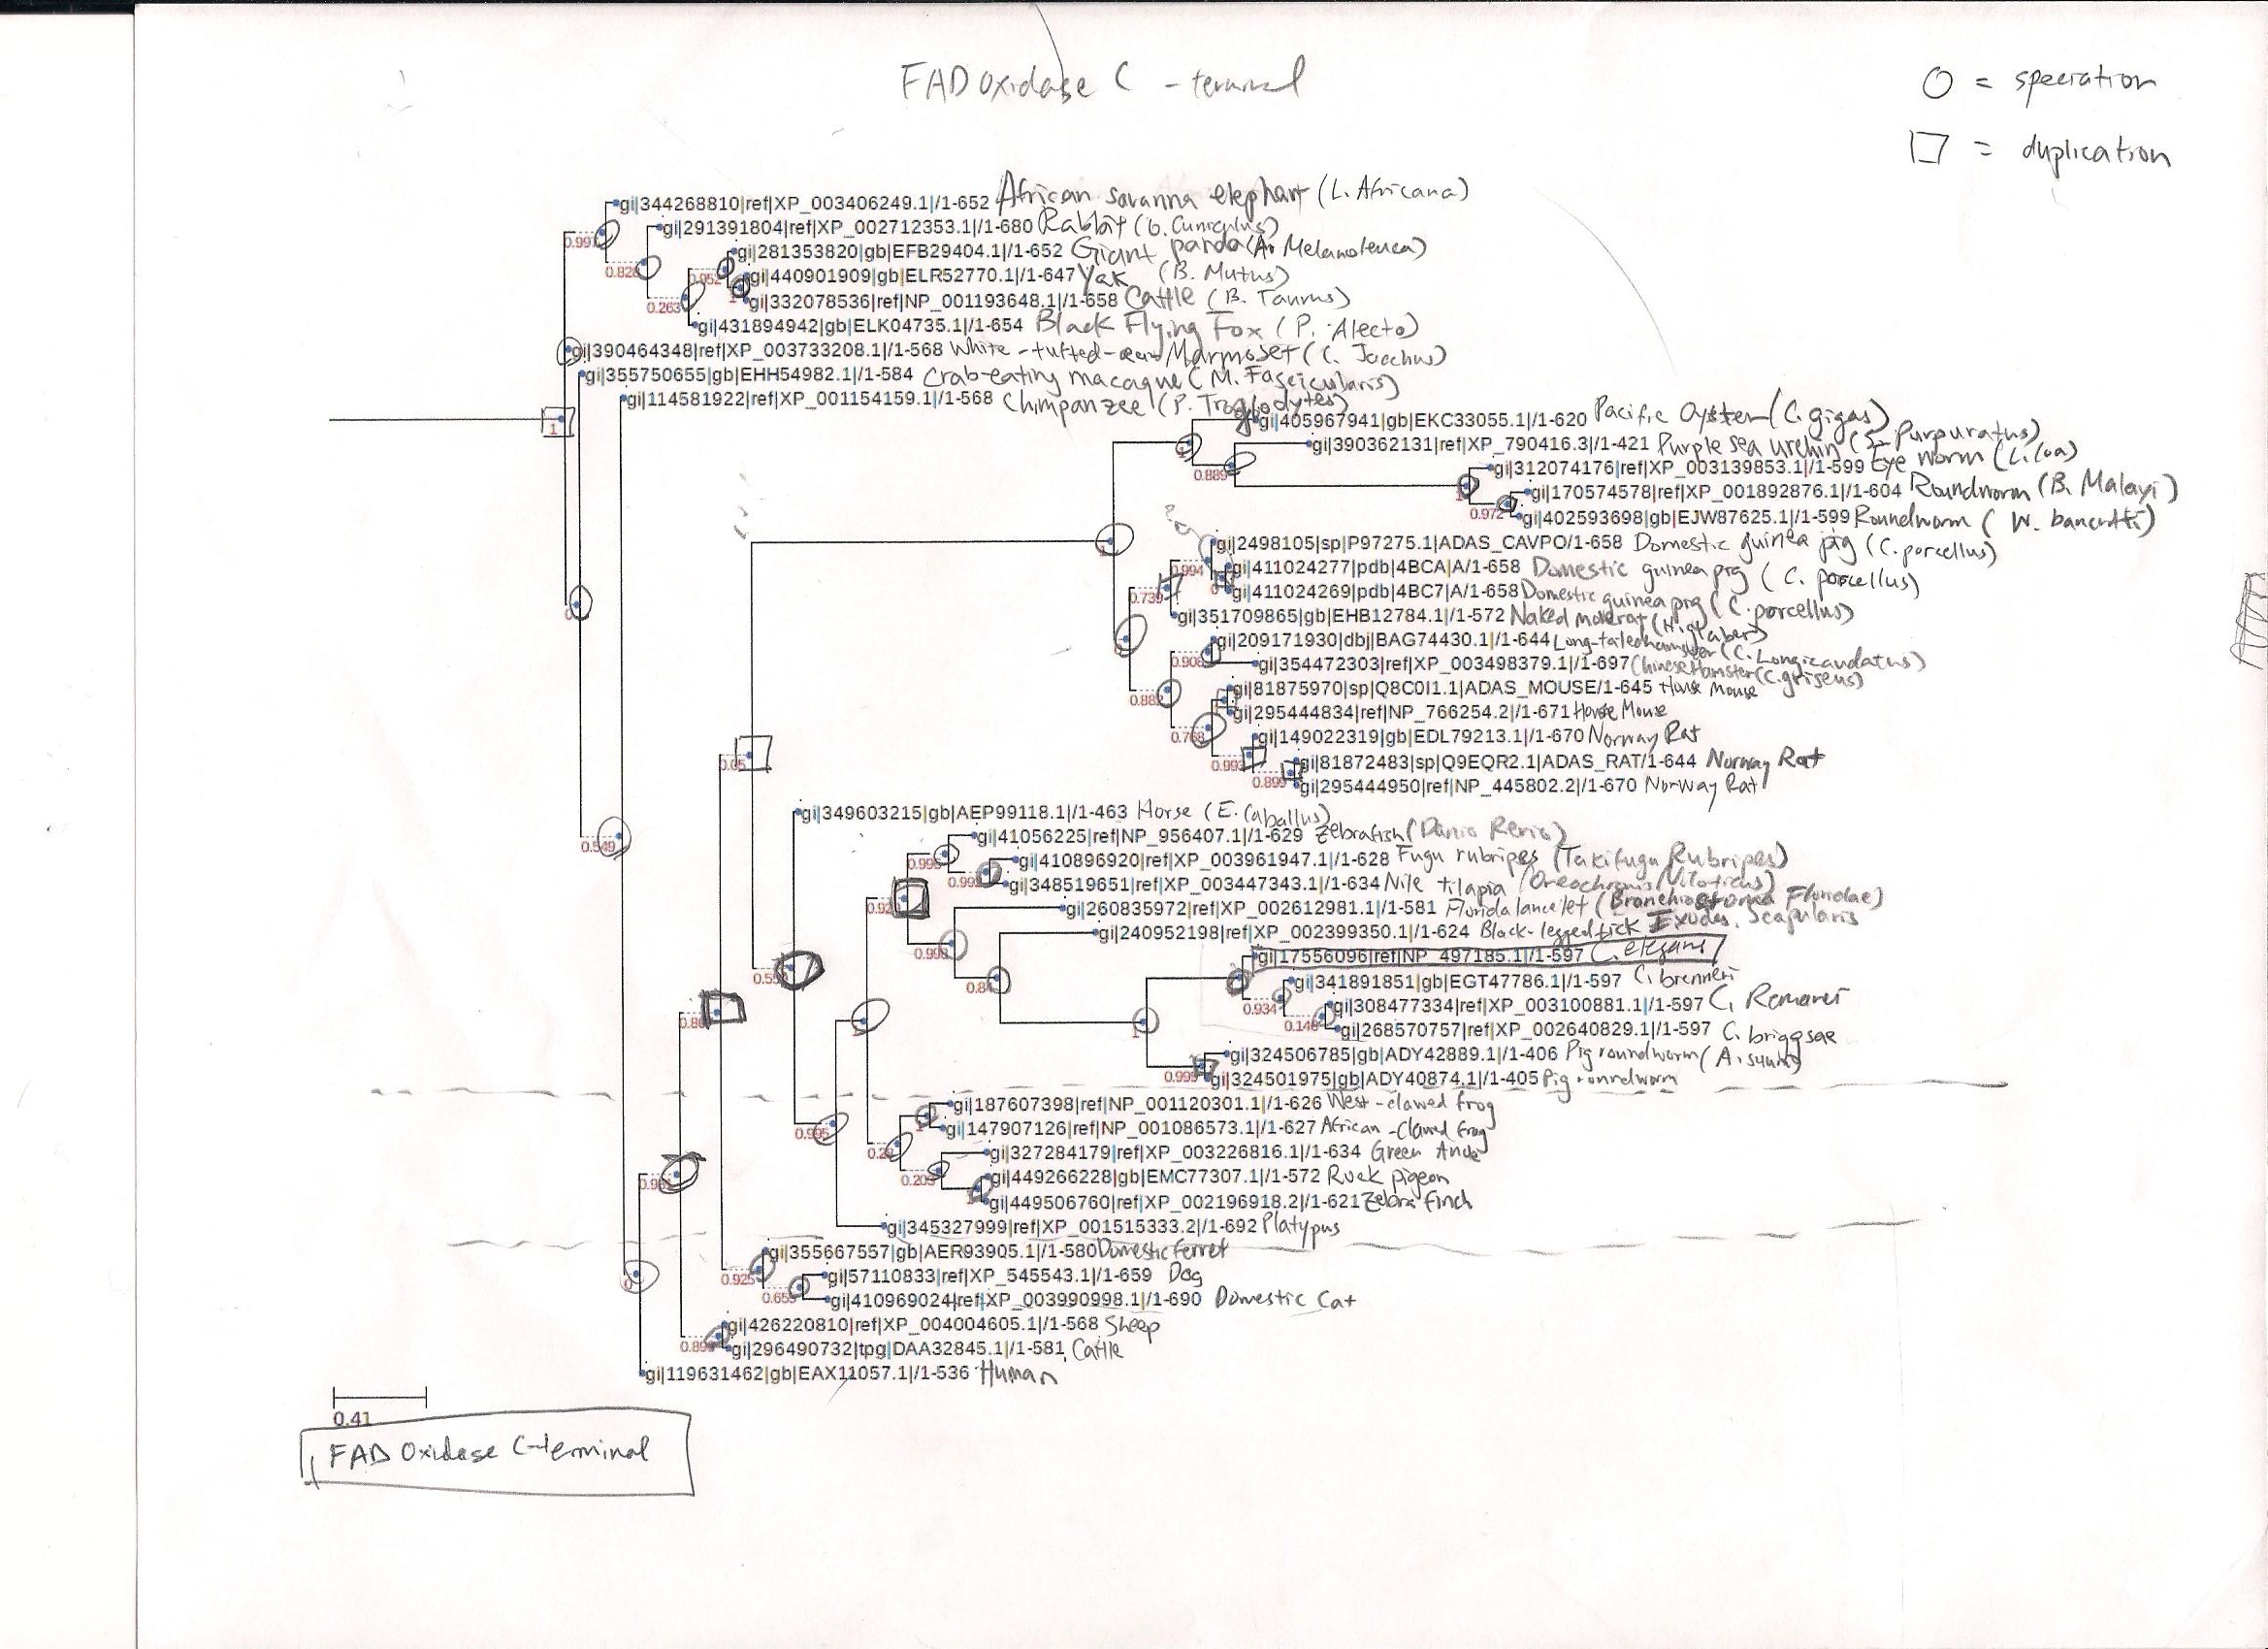 FAD oxidase C-terminal
O = speciation
□ = duplication
gi|344268810|ref|XP_003406249.1|/1-652 African savanna elephant (L. Africana)
gi|291391804|ref|XP_002712353.1|/1-680 Rabbit (O. Cuniculus)
0.997
gi|281353820|gb|EFB29404.1|/1-652 Giant panda (A. Melanoleuca)
0.828
gi|440901909|gb|ELR52770.1|/1-647 Yak (B. Mutus)
0.952
gi|332078536|ref|NP_001193648.1|/1-658 Cattle (B. Taurus)
1
0.263
gi|431894942|gb|ELK04735.1|/1-654 Black Flying Fox (P. Alecto)
gi|390464348|ref|XP_003733208.1|/1-568 White-tufted-ear Marmoset (C. Jacchus)
gi|355750655|gb|EHH54982.1|/1-584 Crab-eating macaque (M. Fascicularis)
gi|114581922|ref|XP_001154159.1|/1-568 Chimpanzee (P. Troglodytes)
gi|405967941|gb|EKC33055.1|/1-620 Pacific Oyster (C. gigas)
1
gi|390362131|ref|XP_790416.3|/1-421 Purple sea urchin (S. Purpuratus)
1
gi|312074176|ref|XP_003139853.1|/1-599 Eye worm (L. loa)
0.889
gi|170574578|ref|XP_001892876.1|/1-604 Roundworm (B. Malayi)
1
gi|402593698|gb|EJW87625.1|/1-599 Roundworm (W. bancrofti)
0.972
gi|2498105|sp|P97275.1|ADAS_CAVPO/1-658 Domestic guinea pig (C. porcellus)
1
gi|411024277|pdb|4BCA|A/1-658 Domestic guinea pig (C. porcellus)
0.994
gi|411024269|pdb|4BC7|A/1-658 Domestic guinea pig (C. porcellus)
0
0.739
gi|351709865|gb|EHB12784.1|/1-572 Naked molerat (H. glaber)
0
gi|209171930|dbj|BAG74430.1|/1-644 Long-tailed hamster (C. Longicaudatus)
0
gi|354472303|ref|XP_003498379.1|/1-697 Chinese Hamster (C. griseus)
0.908
gi|81875970|sp|Q8C0I1.1|ADAS_MOUSE/1-645 House Mouse
0.882
gi|295444834|ref|NP_766254.2|/1-671 House Mouse
gi|149022319|gb|EDL79213.1|/1-670 Norway Rat
0.768
gi|81872483|sp|Q9EQR2.1|ADAS_RAT/1-644 Norway Rat
0.993
0.05
gi|295444950|ref|NP_445802.2|/1-670 Norway Rat
0.899
gi|349603215|gb|AEP99118.1|/1-463 Horse (E. Caballus)
gi|41056225|ref|NP_956407.1|/1-629 Zebrafish (Danio Rerio)
0.549
gi|410896920|ref|XP_003961947.1|/1-628 Fugu rubripes (Takifugu Rubripes)
0.996
gi|348519651|ref|XP_003447343.1|/1-634 Nile tilapia (Oreochromis Niloticus)
0.992
gi|260835972|ref|XP_002612981.1|/1-581 Florida lancelet (Branchiostoma Floridae)
gi|240952198|ref|XP_002399350.1|/1-624 Black-legged tick Ixodes Scapularis
gi|17556096|ref|NP_497185.1|/1-597 C. elegans
0.993
gi|341891851|gb|EGT47786.1|/1-597 C. brenneri
gi|308477334|ref|XP_003100881.1|/1-597 C. Remanei
0.934
gi|268570757|ref|XP_002640829.1|/1-597 C. briggsae
0.148
1
gi|324506785|gb|ADY42889.1|/1-406 Pig roundworm (A. suum)
gi|324501975|gb|ADY40874.1|/1-405 Pig roundworm
0.999
gi|187607398|ref|NP_001120301.1|/1-626 West-clawed frog
gi|147907126|ref|NP_001086573.1|/1-627 African-clawed frog
1
0.995
gi|327284179|ref|XP_003226816.1|/1-634 Green Anole
gi|449266228|gb|EMC77307.1|/1-572 Rock pigeon
0.209
gi|449506760|ref|XP_002196918.2|/1-621 Zebra finch
gi|345327999|ref|XP_001515333.2|/1-692 Platypus
gi|355667557|gb|AER93905.1|/1-580 Domestic ferret
gi|57110833|ref|XP_545543.1|/1-659 Dog
0.925
0
gi|410969024|ref|XP_003990998.1|/1-690 Domestic Cat
0.653
gi|426220810|ref|XP_004004605.1|/1-568 Sheep
gi|296490732|tpg|DAA32845.1|/1-581 Cattle
gi|119631462|gb|EAX11057.1|/1-536 Human
0.41
FAD Oxidase C-terminal